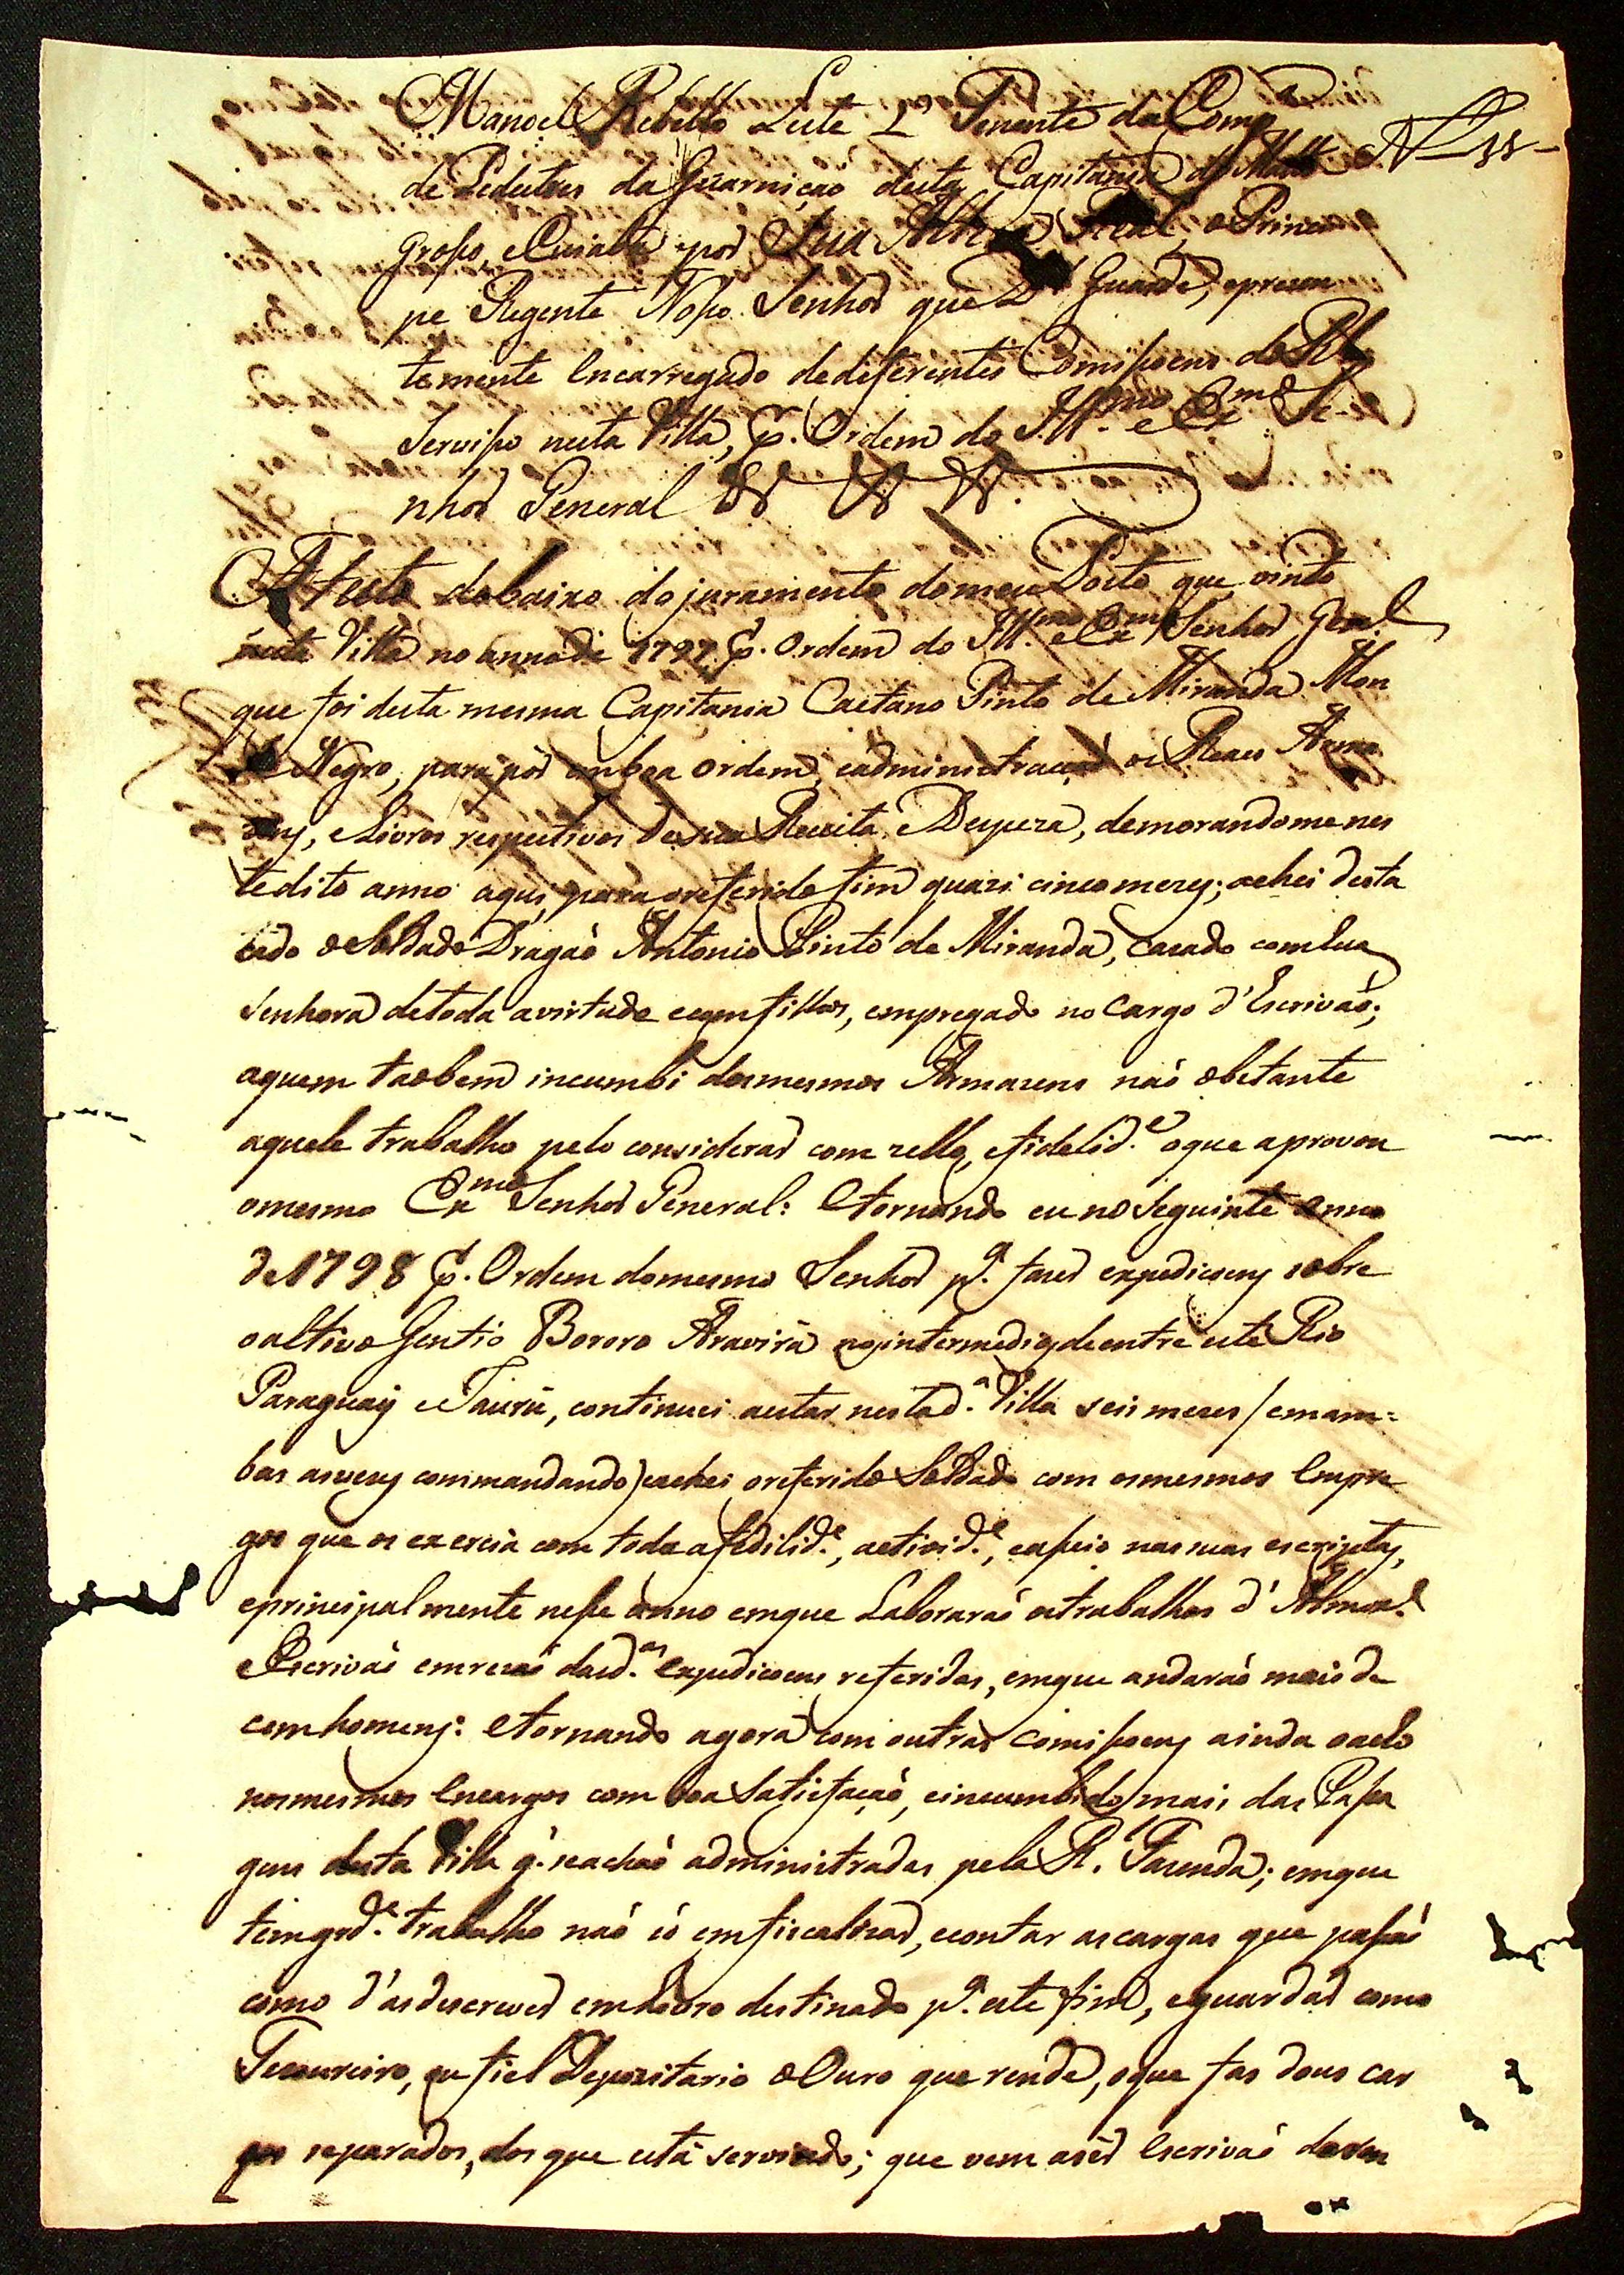 Manoel Rebello Leite 2º Tenente da Comp.ª
de Pedestres da Guarnição desta Capitania do Matto
Grosso, e Cuiabá por Sua Alteza Real, o Princi
pe Regente Nosso Senhor que D.s Guarde, e prezen
temente encarregado de diferentes Comissoens do Rl.
Servisso nesta Villa, p. Ordem do Ill.mo e Ex.mo Se
nhor General
Atesto debaixo do juramento do meu Posto que, vindo
á esta Villa no anno de 1797 p. Ordem do Ill.mo e Ex.mo Senhor Gen.al
que foi desta mesma Capitania Caetano Pinto de Miranda Mon
te Negro, para pôr em boa ordem, e administração os Reaes Arma
zens, e Livros respectivos de sua Receita e Despeza, demorandome nes
te dito anno aqui, para o referido fim quazi cinco mezes; achei desta
cado o Soldado Dragaõ Antonio Pinto de Miranda, cazado com hua
Senhora de toda a virtude e com filhos, empregado no Cargo d'Escrivaõ;
a quem taobem incumbi dos mesmos Armazens naõ obstante
aquele trabalho pelo considerar com zello, e fidelid.e o que aprovou
o mesmo Ex.mo Senhor General: E tornando eu no seguinte anno
de 1798 p. Ordem do mesmo Senhor p.ª fazer expediçoens sobre
o altivo Gentio Bororo Aravirá no intermedio de entre este Rio
Paraguay e Jaurú, continuei a estar nesta d.ª Villa seis mezes (em am=
bas as vezes commandando) e achei o referido Soldado com os mesmos Empre
gos que os exercia com toda a fidilid.e, activid.e, e asseio nas suas escriptas,
e principalmente nesse anno em que Laboraraõ os trabalhos d'Almox.e
e Escrivaõ em rezaõ das d.as expediçoens referidas, em que andaraõ mais de
cem homens: E tornando agora com outras comissoens ainda o acho
nos mesmos Encargos com boa Satisfaçaõ, e incumbido mais das Passa
gens desta Villa q. se achaõ administradas pela R. Fazenda; em que
tem grd.e trabalho naõ só em fiscalizar, e contar as cargas que passaõ
como d'as descrever em Livro destinado p.ª este fim, e guardar como
Tezoureiro, ou fiel Depozitario o Ouro que rende, o que faz dous car
gos separados, dos que está servindo; que vem a ser Escrivaõ da